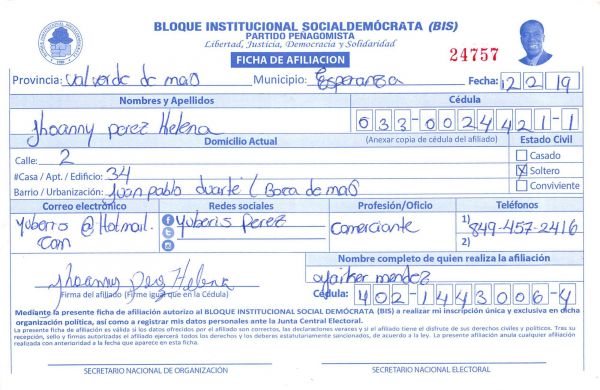 BLOQUE INSTITUCIONAL SOCIALDEMÓCRATA (BIS)
PARTIDO PEÑAGOMISTA
Libertad, Justicia, Democracia y Solidaridad
FICHA DE AFILIACION
24757
Provincia: Valverde de mao Municipio: Esperanza Fecha: 12 2 19
Nombres y Apellidos Cédula
Jhoanny perez Helena 033-0024421-1
Domicilio Actual (Anexar copia de cédula del afiliado) Estado Civil
Calle: 2 Casado
#Casa / Apt. / Edificio: 34 X Soltero
Barrio / Urbanización: Juan pablo duarte / Boca de mao Conviviente
Correo electrónico Redes sociales Profesión/Oficio Teléfonos
Yuberis @Hotmail. Yuberis Perez Comerciante 1) 849-457-2416
Com 2)
Nombre completo de quien realiza la afiliación
Jhoanny Perez Helena mendez
Firma del afiliado (Firme igual que en la Cédula) Cédula: 402-1443006-4
Mediante la presente ficha de afiliación autorizo al BLOQUE INSTITUCIONAL SOCIAL DEMÓCRATA (BIS) a realizar mi inscripción única y exclusiva en dicha
organización política, así como a registrar mis datos personales ante la Junta Central Electoral.
La presente ficha de afiliación es válida si los datos ofrecidos por el afiliado son correctos, las declaraciones veraces y si el afiliado tiene el disfrute de sus derechos civiles y políticos. Tras su
recepción, sello y firmas autorizadas el afiliado ejercerá todos los derechos y los deberes estatutariamente sancionados, de acuerdo a la ley. La presente afiliación anula cualquier afiliación
realizada con anterioridad a la fecha que aparece en esta ficha.
SECRETARIO NACIONAL DE ORGANIZACIÓN SECRETARIO NACIONAL ELECTORAL